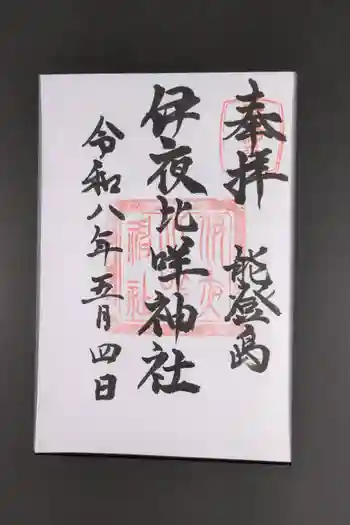 奉拝
能登島
伊夜比咩神社
令和八年五月四日